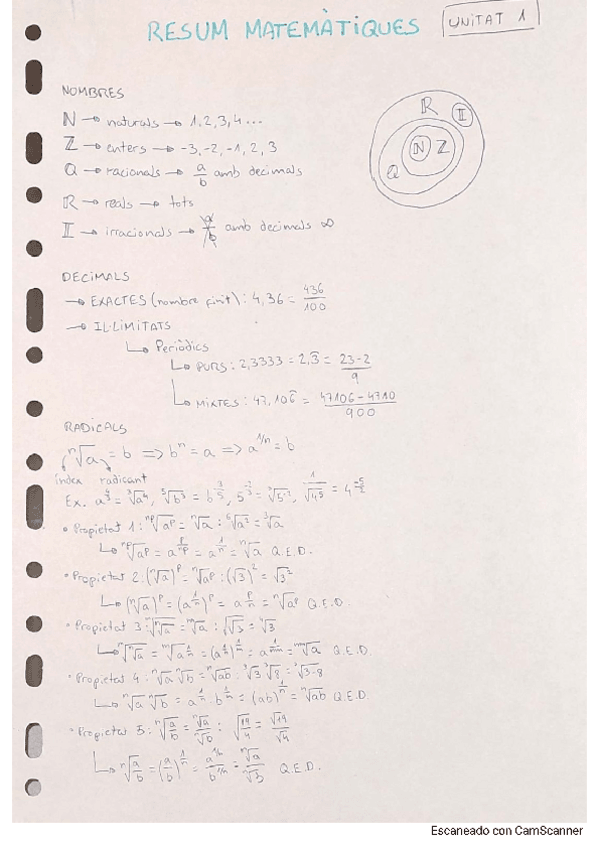 RESUM MATEMÀTIQUES
UNITAT 1
NOMBRES
ℕ → naturals → 1, 2, 3, 4 ...
ℤ → enters → -3, -2, -1, 2, 3
Q → racionals → a/b amb decimals
ℝ → reals → tots
𝕀 → irracionals → a/b amb decimals ∞
ℝ 𝕀 ℕ ℤ Q
DECIMALS
→ EXACTES (nombre finit): 4,36 = 436/100
→ IL·LIMITATS
↳ Periòdics
↳ PURS: 2,3333 = 2,3̅ = 23-2/9
↳ MIXTES: 47,106̅ = 47106-4710/900
RADICALS
ⁿ√a = b ⇒ bⁿ = a ⇒ a^1/n = b
índex radicant
Ex.
• Propietat 1: ⁿᵖ√aᵖ = ⁿ√a : ⁶√a² = ³√a
↳ ⁿᵖ√aᵖ = a^p/np = a^1/n = ⁿ√a Q.E.D.
• Propietat 2: (ⁿ√a)ᵖ = ⁿ√aᵖ : (√3)² = √3²
↳ (ⁿ√a)ᵖ = (a^1/n)ᵖ = a^p/n = ⁿ√aᵖ Q.E.D.
• Propietat 3:
Q.E.D.
• Propietat 4: ⁿ√a ⁿ√b = ⁿ√ab : ³√3 ³√8 = ³√3·8
↳ ⁿ√a ⁿ√b = a^1/n · b^1/n = (ab)^1/n = ⁿ√ab Q.E.D.
• Propietat 5: ⁿ√a/b = ⁿ√a/ⁿ√b : √19/4 = √19/√4
↳ ⁿ√a/b = (a/b)^1/n = a^1/n/b^1/n = ⁿ√a/ⁿ√b Q.E.D.
Escaneado con CamScanner